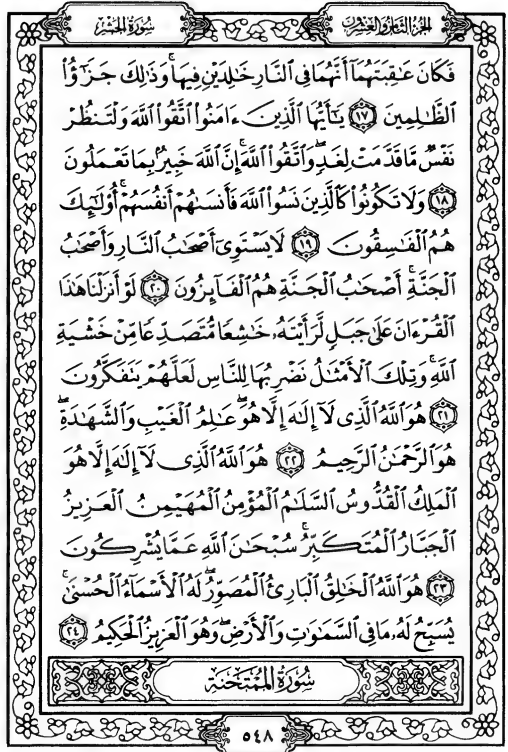 الجزء الثامن والعشرون
سورة الحشر
فَكَانَ عَٰقِبَتَهُمَآ أَنَّهُمَا فِى ٱلنَّارِ خَٰلِدَيْنِ فِيهَا ۚ وَذَٰلِكَ جَزَٰٓؤُا۟
ٱلظَّٰلِمِينَ ١٧ يَٰٓأَيُّهَا ٱلَّذِينَ ءَامَنُوا۟ ٱتَّقُوا۟ ٱللَّهَ وَلْتَنظُرْ
نَفْسٌ مَّا قَدَّمَتْ لِغَدٍ ۖ وَٱتَّقُوا۟ ٱللَّهَ ۚ إِنَّ ٱللَّهَ خَبِيرٌۢ بِمَا تَعْمَلُونَ
١٨ وَلَا تَكُونُوا۟ كَٱلَّذِينَ نَسُوا۟ ٱللَّهَ فَأَنسَىٰهُمْ أَنفُسَهُمْ ۚ أُو۟لَٰٓئِكَ
هُمُ ٱلْفَٰسِقُونَ ١٩ لَا يَسْتَوِىٓ أَصْحَٰبُ ٱلنَّارِ وَأَصْحَٰبُ
ٱلْجَنَّةِ ۚ أَصْحَٰبُ ٱلْجَنَّةِ هُمُ ٱلْفَآئِزُونَ ٢٠ لَوْ أَنزَلْنَا هَٰذَا
ٱلْقُرْءَانَ عَلَىٰ جَبَلٍ لَّرَأَيْتَهُۥ خَٰشِعًا مُّتَصَدِّعًا مِّنْ خَشْيَةِ
ٱللَّهِ ۚ وَتِلْكَ ٱلْأَمْثَٰلُ نَضْرِبُهَا لِلنَّاسِ لَعَلَّهُمْ يَتَفَكَّرُونَ
٢١ هُوَ ٱللَّهُ ٱلَّذِى لَآ إِلَٰهَ إِلَّا هُوَ ۖ عَٰلِمُ ٱلْغَيْبِ وَٱلشَّهَٰدَةِ ۖ
هُوَ ٱلرَّحْمَٰنُ ٱلرَّحِيمُ ٢٢ هُوَ ٱللَّهُ ٱلَّذِى لَآ إِلَٰهَ إِلَّا هُوَ
ٱلْمَلِكُ ٱلْقُدُّوسُ ٱلسَّلَٰمُ ٱلْمُؤْمِنُ ٱلْمُهَيْمِنُ ٱلْعَزِيزُ
ٱلْجَبَّارُ ٱلْمُتَكَبِّرُ ۚ سُبْحَٰنَ ٱللَّهِ عَمَّا يُشْرِكُونَ
٢٣ هُوَ ٱللَّهُ ٱلْخَٰلِقُ ٱلْبَارِئُ ٱلْمُصَوِّرُ ۖ لَهُ ٱلْأَسْمَآءُ ٱلْحُسْنَىٰ ۚ
يُسَبِّحُ لَهُۥ مَا فِى ٱلسَّمَٰوَٰتِ وَٱلْأَرْضِ ۖ وَهُوَ ٱلْعَزِيزُ ٱلْحَكِيمُ ٢٤
سُورَةُ المُمْتَحنَةِ
٥٤٨